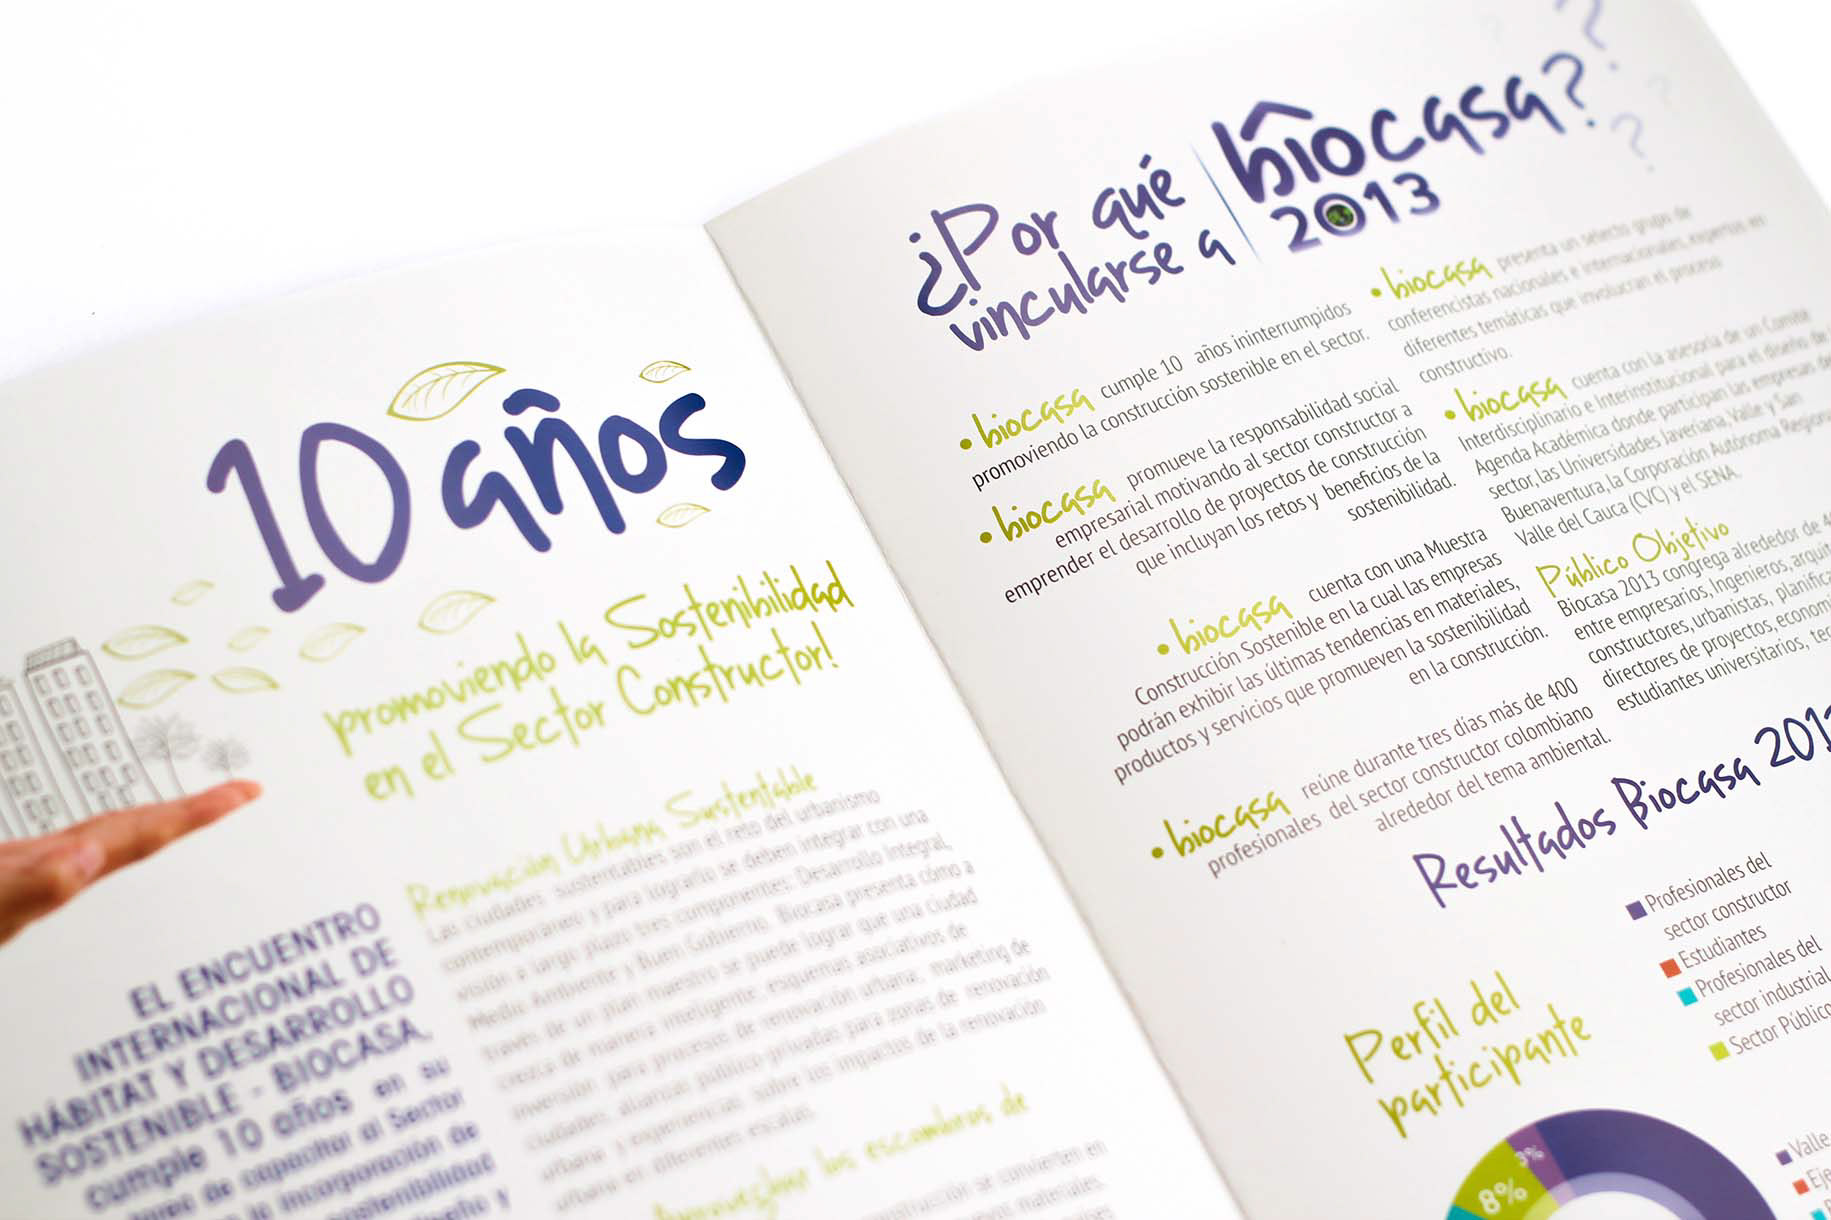 10 años
promoviendo la Sostenibilidad
en el Sector Constructor!
EL ENCUENTRO
INTERNACIONAL DE
HÁBITAT Y DESARROLLO
SOSTENIBLE - BIOCASA.
cumple 10 años en su
de capacitar al Sector
la incorporación de
sostenibilidad
diseño y
Renovación Urbana Sustentable
Las ciudades sustentables son el reto del urbanismo
contemporáneo y para lograrlo se deben integrar con una
visión a largo plazo tres componentes: Desarrollo Integral,
Medio Ambiente y Buen Gobierno. Biocasa presenta cómo a
través de un plan maestro se puede lograr que una ciudad
crezca de manera inteligente; esquemas asociativos de
inversión para procesos de renovación urbana; marketing de
ciudades, alianzas público-privadas para zonas de renovación
urbana y experiencias sobre los impactos de la renovación
urbana en diferentes escalas.
los escombros de
se convierten en
materiales,
¿Por qué
vincularse a
biocasa?
2013
• biocasa cumple 10 años ininterrumpidos
promoviendo la construcción sostenible en el sector.
• biocasa promueve la responsabilidad social
empresarial motivando al sector constructor a
emprender el desarrollo de proyectos de construcción
que incluyan los retos y beneficios de la
sostenibilidad.
• biocasa cuenta con una Muestra
Construcción Sostenible en la cual las empresas
podrán exhibir las últimas tendencias en materiales,
productos y servicios que promueven la sostenibilidad
en la construcción.
• biocasa reúne durante tres días más de 400
profesionales del sector constructor colombiano
alrededor del tema ambiental.
• biocasa presenta un selecto grupo de
conferencistas nacionales e internacionales, expertos en
diferentes temáticas que involucran el proceso
constructivo.
• biocasa cuenta con la asesoría de un Comité
Interdisciplinario e Interinstitucional para el diseño de
Agenda Académica donde participan las empresas del
sector, las Universidades Javeriana, Valle y San
Buenaventura, la Corporación Autónoma Regional
Valle del Cauca (CVC) y el SENA.
Público Objetivo
Biocasa 2013 congrega alrededor de
entre empresarios, Ingenieros,
constructores, urbanistas,
directores de proyectos,
estudiantes universitarios,
Resultados Biocasa
Profesionales del
sector constructor
Estudiantes
Profesionales del
sector industrial
Sector Público
Perfil del
participante
3%
8%
Valle